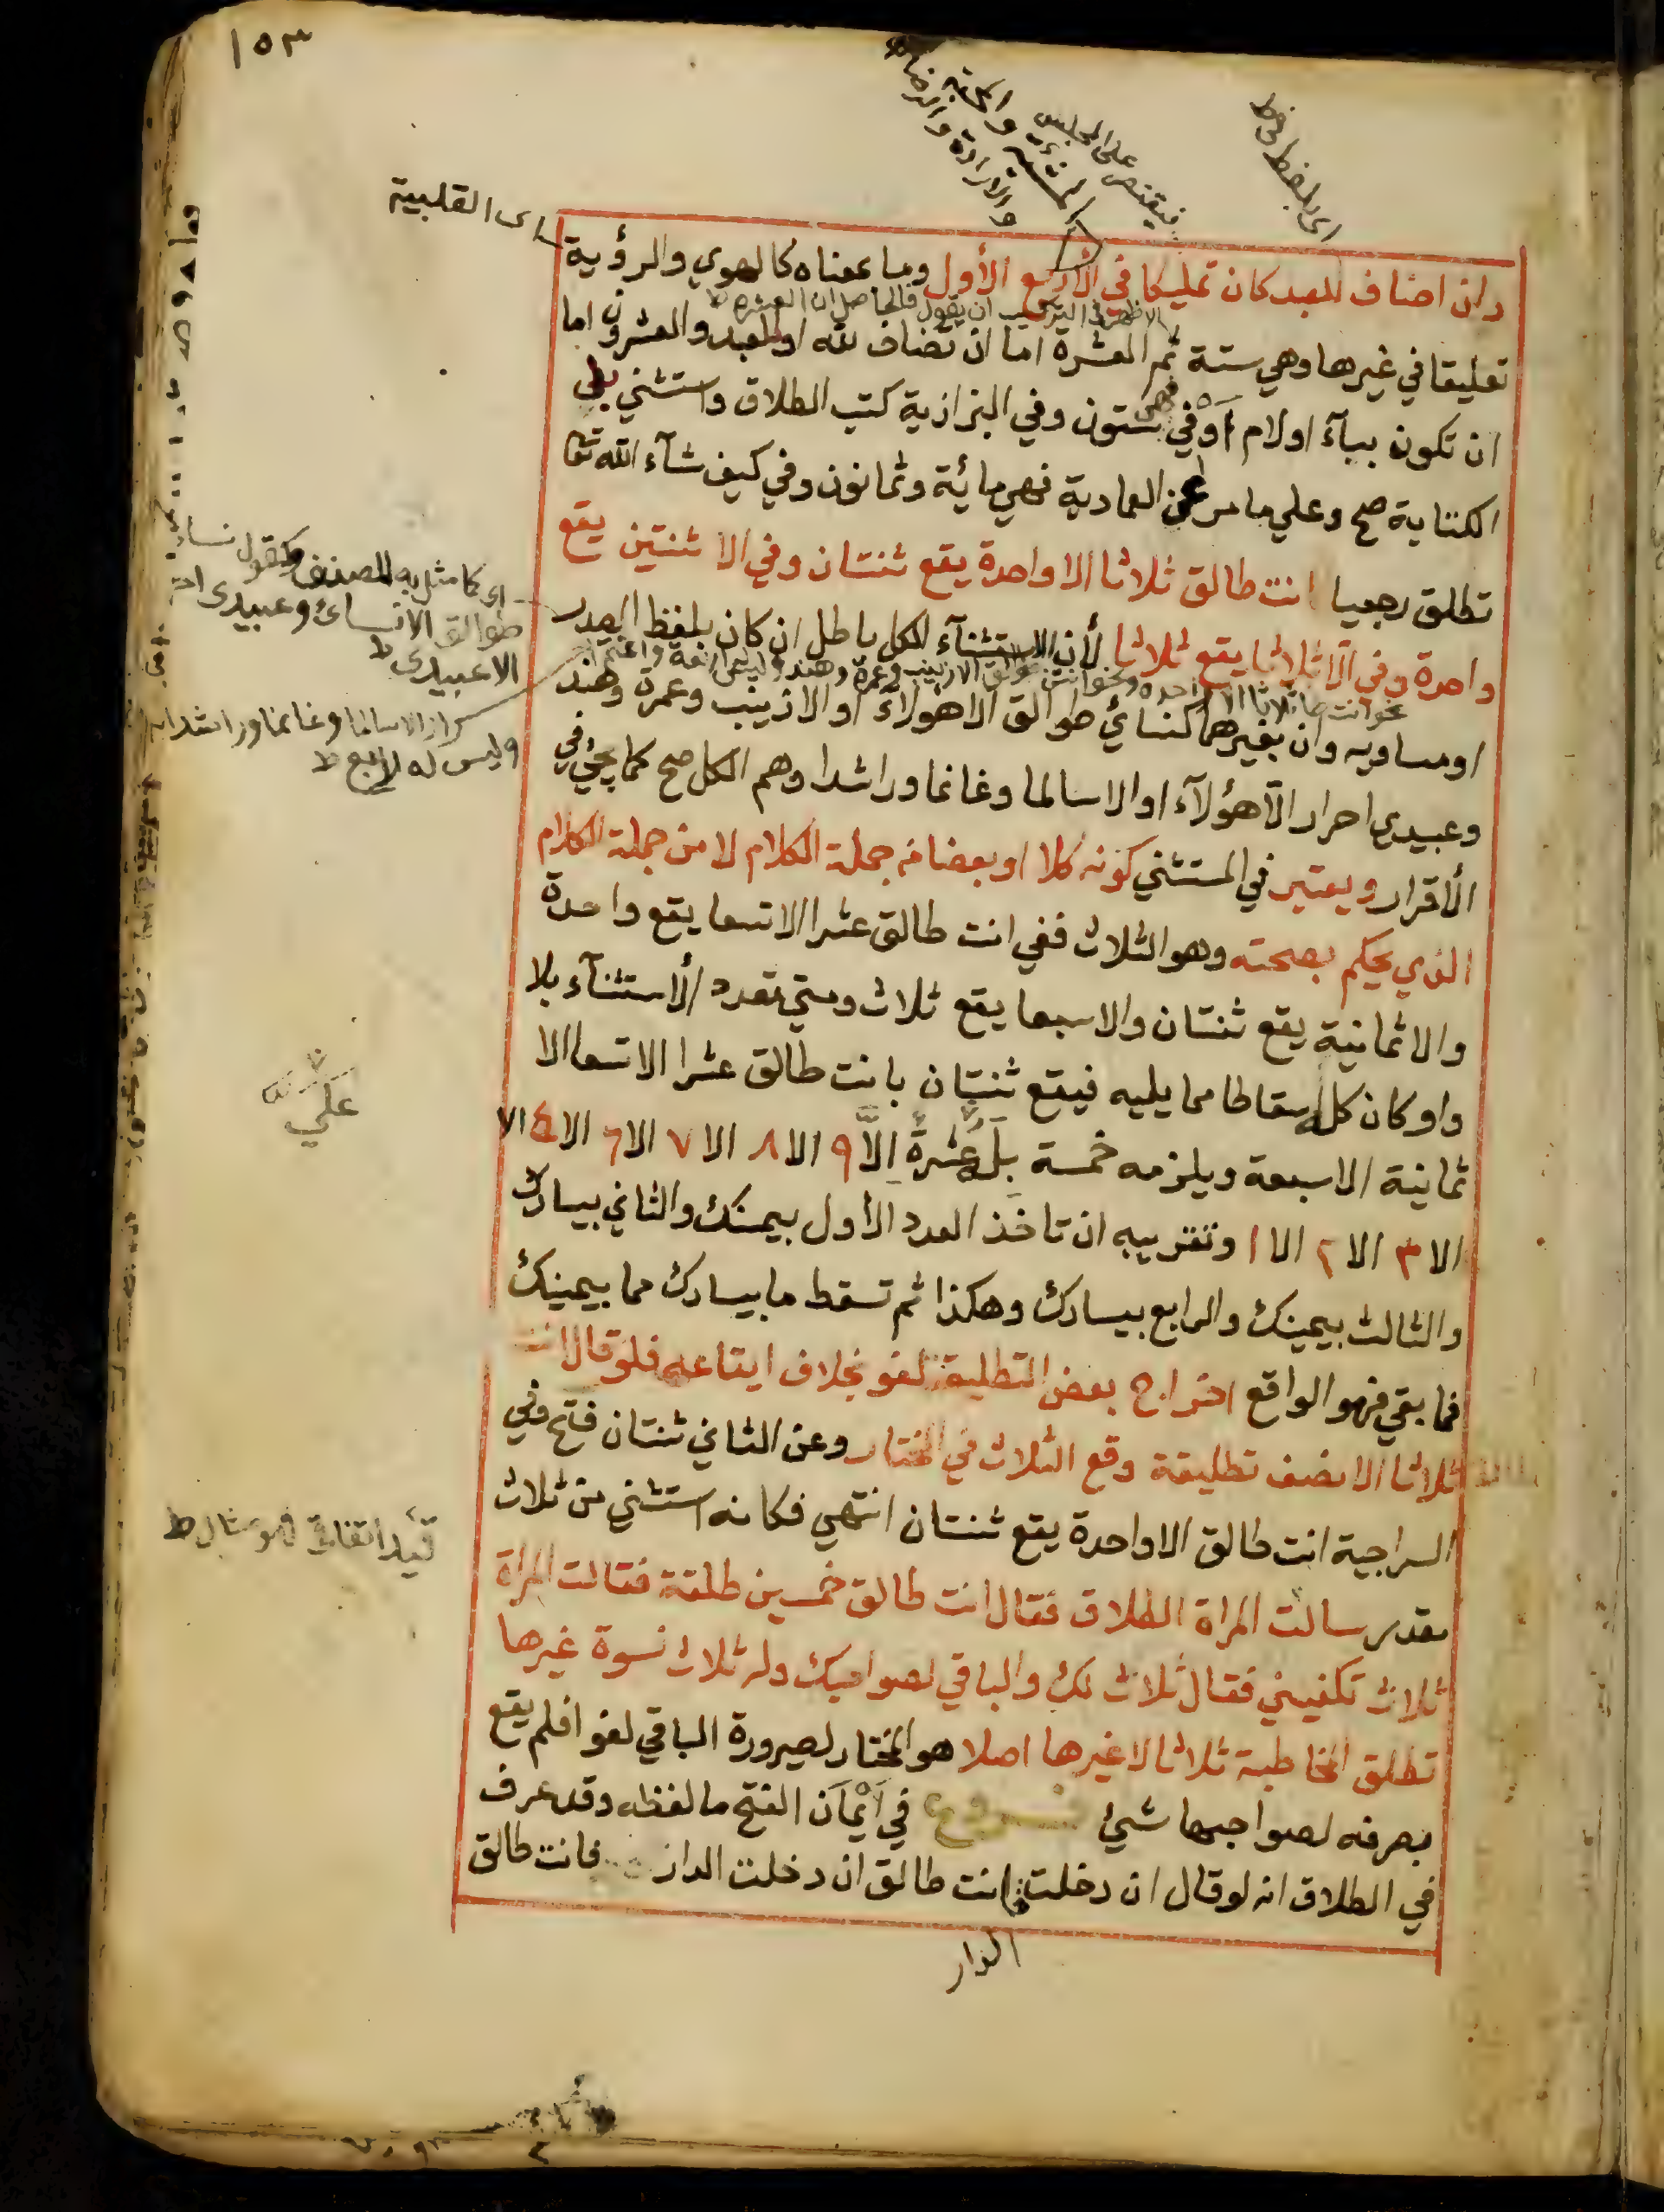 ١٥٣
اى بلفظ
فيقتصر على المجلس
المشيئة والمحبة
والارادة والرضا
اى القلبية
وان اضاف للعبد كان تمليكا في الأربع الأول وما بمعناه كالهوي والرؤية
الاظهر في التركيب ان يقول فالحاصل ان العشرة ط
تعليقا في غيرها وهي ستة ثم العشرة اما ان تضاف لله او للعبد والعشرون اما
ان تكون ببآء او لام او في فهي ستون وفي البزازية كتب الطلاق واستثني
الكتابة صح وعلي ما مر عن العمادية فهي مائة وثمانون وفي كيف شآء الله تعا
تطلق رجعيا انت طالق ثلاثا الا واحدة يقع ثنتان وفي الا ثنتين يقع
واحدة وفي الّا ثلاثا يقع ثلاثا لأن الاستثنآء للكل باطل ان كان بلفظ الصدر
او مساويه وان بغيرهما كنسائي طوالق الا هؤلآء او الا زينب وعمرة وهند
وعبيدي احرار الّا هؤلآء او الا سالما وغانما وراشدا وهم الكل صح كما يجئ في
الأقرار ويعتبر في المستثني كونه كلا او بعضا من جملة الكلام لا من جملة الكلام
الذي يحكم بصحته وهو الثلاث ففي انت طالق عشرا الا تسعا يقع واحدة
والا ثمانية يقع ثنتان والا سبعا يقع ثلاث ومتي تعدد الأستثنآء بلا
واو كان كل اسقاطا مما يليه فيقع ثنتان بانت طالق عشرا الا تسعا الا
ثمانية الا سبعة ويلزمه خمسة بله عشرة الّا ٩ الا ٨ الا ٧ الا ٦ الا ٤ الا
الا ٣ الا ٢ الا ١ وتقريبه ان تاخذ العدد الأول بيمينك والثاني بيسارك
والثالث بيمينك والرابع بيسارك وهكذا ثم تسقط ما بيسارك مما بيمينك
فما بقي فهو الواقع اخراج بعض التطليقة لغو بخلاف ايقاعه فلو قال انت
طالق ثلاثا الا نصف تطليقة وقع الثلاث في المختار وعن الثاني ثنتان فتح وفي
السراجية انت طالق الا واحدة يقع ثنتان انتهي فكانه استثني من ثلاث
مقدر سالت المراة الطلاق فقال انت طالق خمسين طلقة فقالت المراة
ثلاث تكفيني فقال ثلاث لك والباقي لصواحبك وله ثلاث نسوة غيرها
تطلق المخاطبة ثلاثا لا غيرها اصلا هو المختار لصيرورة الباقي لغوا فلم يقع
بصرفه لصواحبها شئ فروع في أيمان الفتح ما لفظه وقد عرف
في الطلاق انه لو قال ان دخلت فانت طالق ان دخلت الدار فانت طالق
الدار
اى كما مثل به المصنف وكقول نسائى
طوالق الا نسائى وعبيدى احرار
الا عبيدى ط
الا سالما وغانما وراشدا
وليس له رابع ط
على
قيد اتفاقى فهو مثال ط